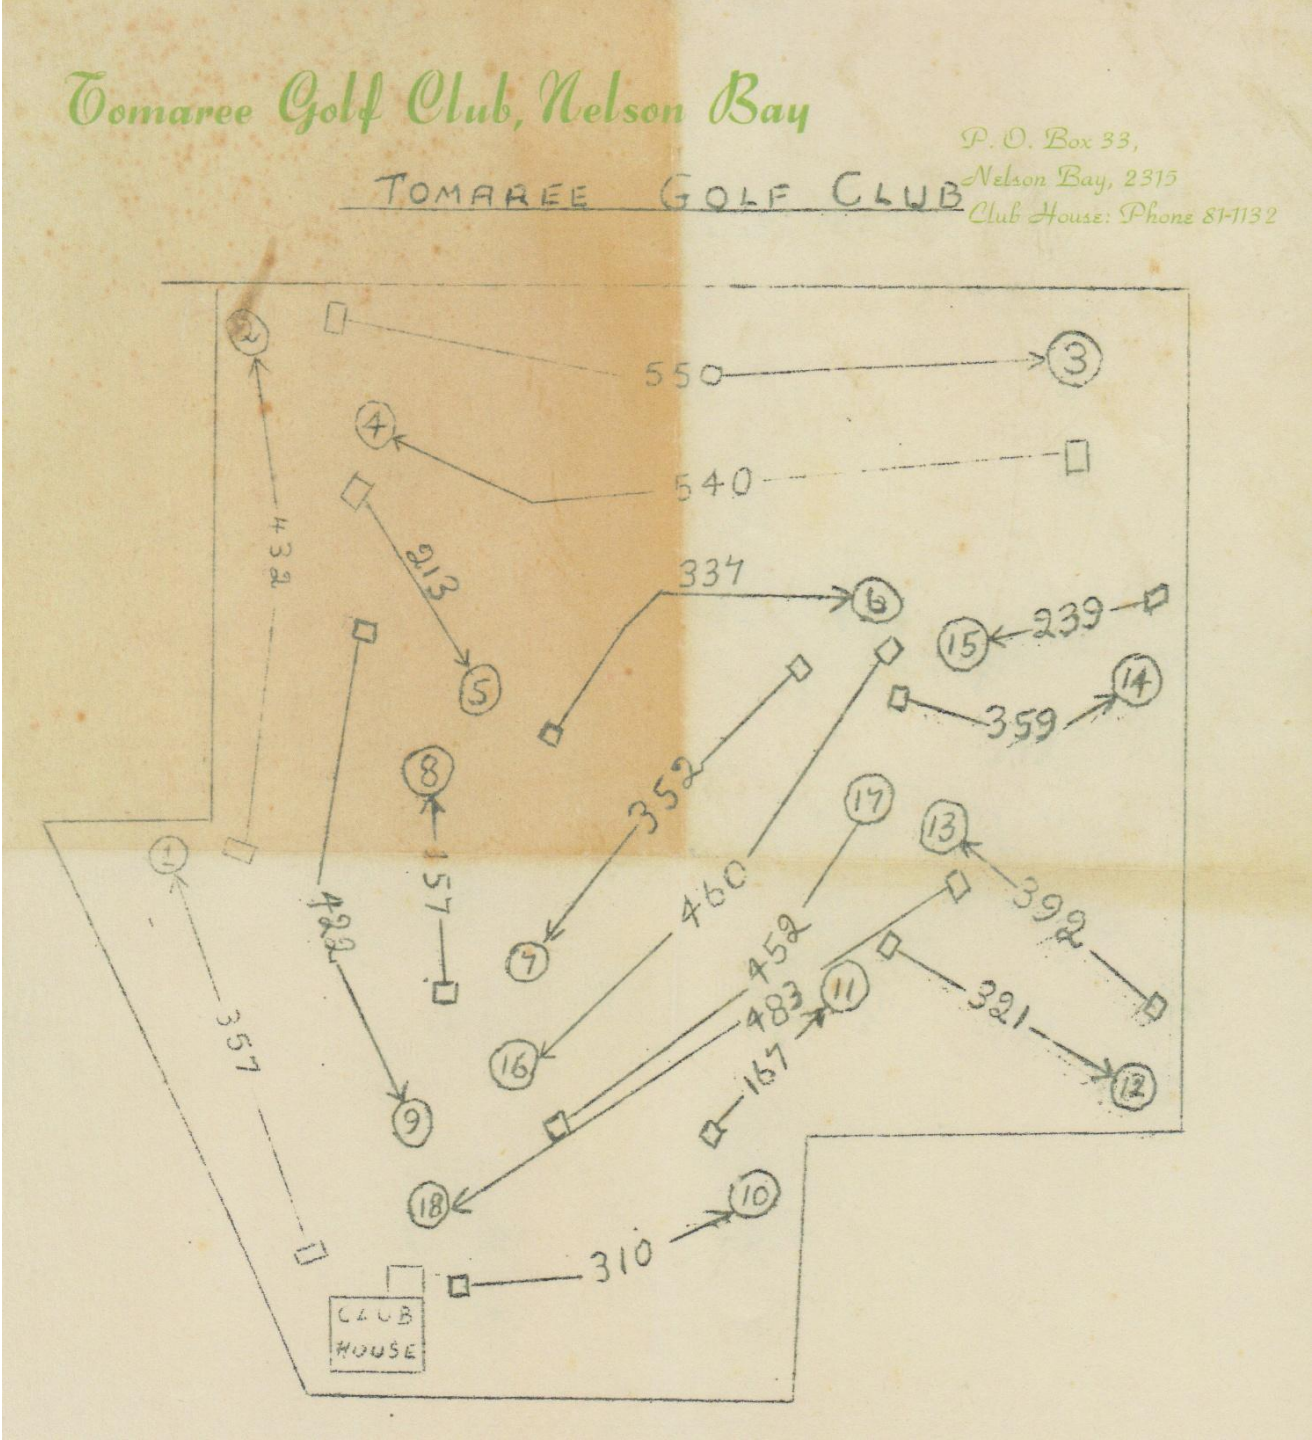 Tomaree Golf Club, Nelson Bay
P. O. Box 33,
Nelson Bay, 2315
Club House: Phone 81-1132
TOMAREE GOLF CLUB
2
550
3
4
540
432
213
337
6
239
15
14
359
5
8
352
17
13
1
157
460
392
422
7
452
483
11
321
357
16
167
12
9
18
10
310
CLUB
HOUSE